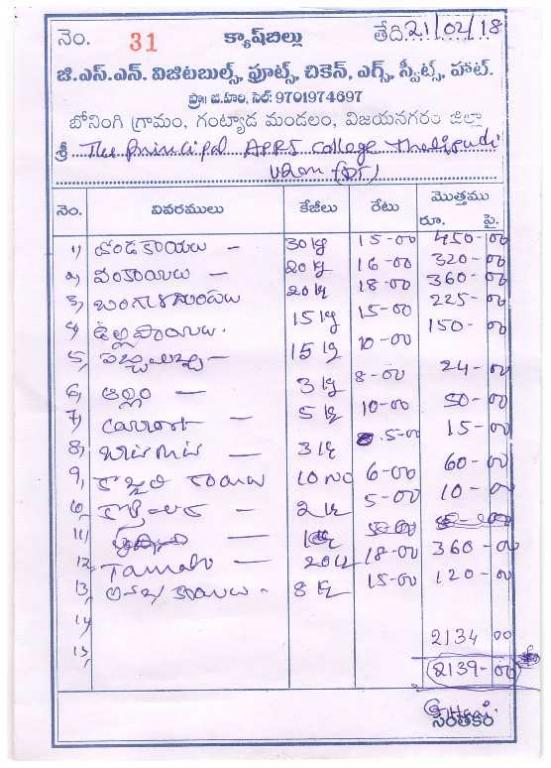 నెం. 31 క్యాష్‌బిల్లు తేది 21/02/18
జి.ఎస్.ఎన్. విజిటబుల్స్, ఫ్రూట్స్, చికెన్, ఎగ్స్, స్వీట్స్, హాట్.
ప్రొ॥ జి.హరి, సెల్: 9701974697
బోనంగి గ్రామం, గంట్యాడ మండలం, విజయనగరం జిల్లా
శ్రీ The Principal APRS College Thatipudi
VZM (DT)
నెం. వివరములు కేజీలు రేటు మొత్తము
రూ. పై.
1) దొండకాయలు - 30 kg 15-00 450-00
2) వంకాయలు - 20 kg 16-00 320-00
3) బంగాళదుంపలు 20 kg 18-00 360-00
4) ఉల్లిపాయలు. 15 kg 15-00 225-00
5) పచ్చిమిర్చి - 15 kg 10-00 150-00
6) అల్లం - 3 kg 8-00 24-00
7) Carrot - 5 kg 10-00 50-00
8) బీట్‌రూట్ - 3 kg 5-00 15-00
9) కొబ్బరి కాయలు 10 No 6-00 60-00
10) కొత్తిమీర - 2 kg 5-00 10-00
11)
12) Tamato - 20 kg 18-00 360-00
13) అరటి కాయలు - 8 kg 15-00 120-00
14)
15)
2134 00
2139-00
సంతకం